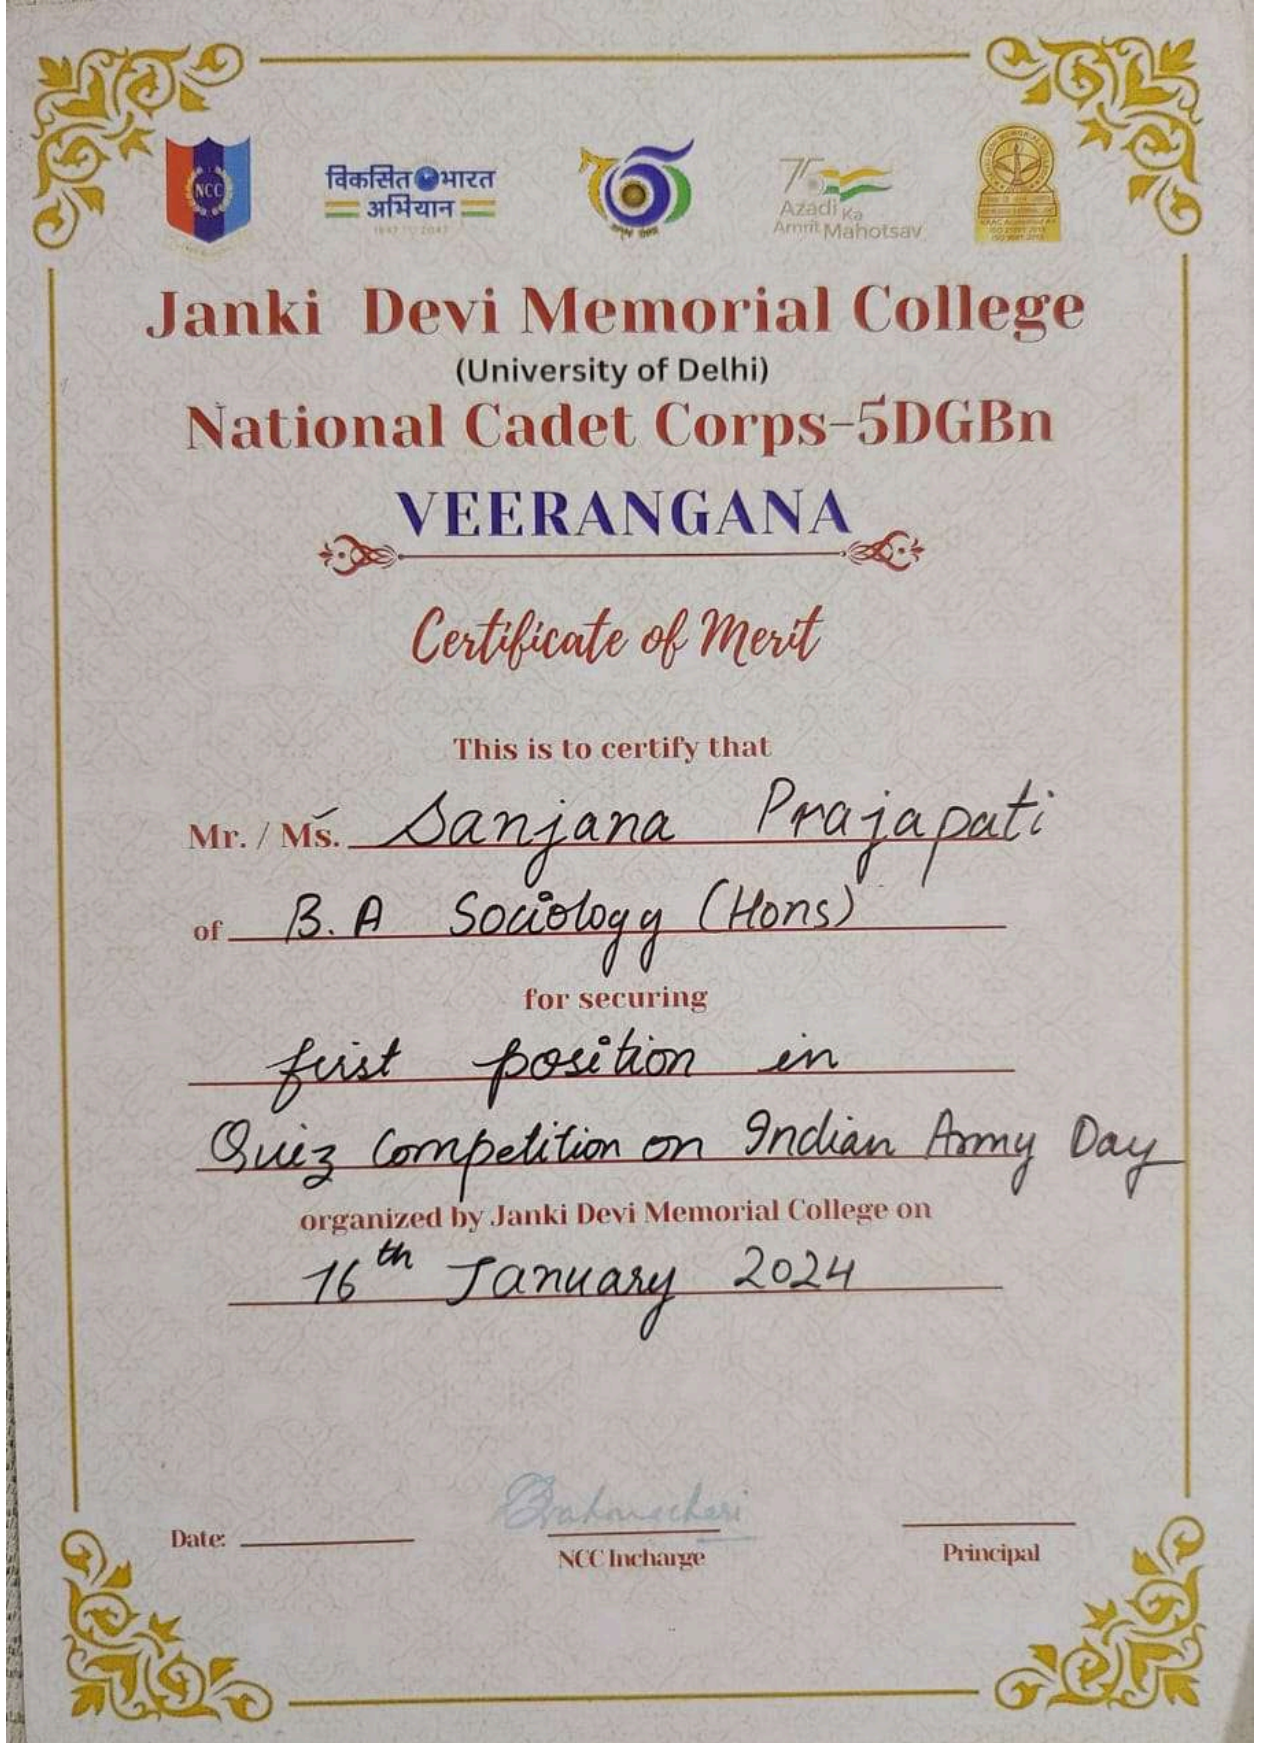 NCC
विकसित भारत
अभियान
1947 TO 2047
75
Azadi Ka
Amrit Mahotsav
Janki Devi Memorial College
(University of Delhi)
National Cadet Corps-5DGBn
VEERANGANA
Certificate of Merit
This is to certify that
Mr. / Ms. Sanjana Prajapati
of B.A Sociology (Hons)
for securing
first position in
Quiz Competition on Indian Army Day
organized by Janki Devi Memorial College on
16th January 2024
Date:
NCC Incharge
Principal